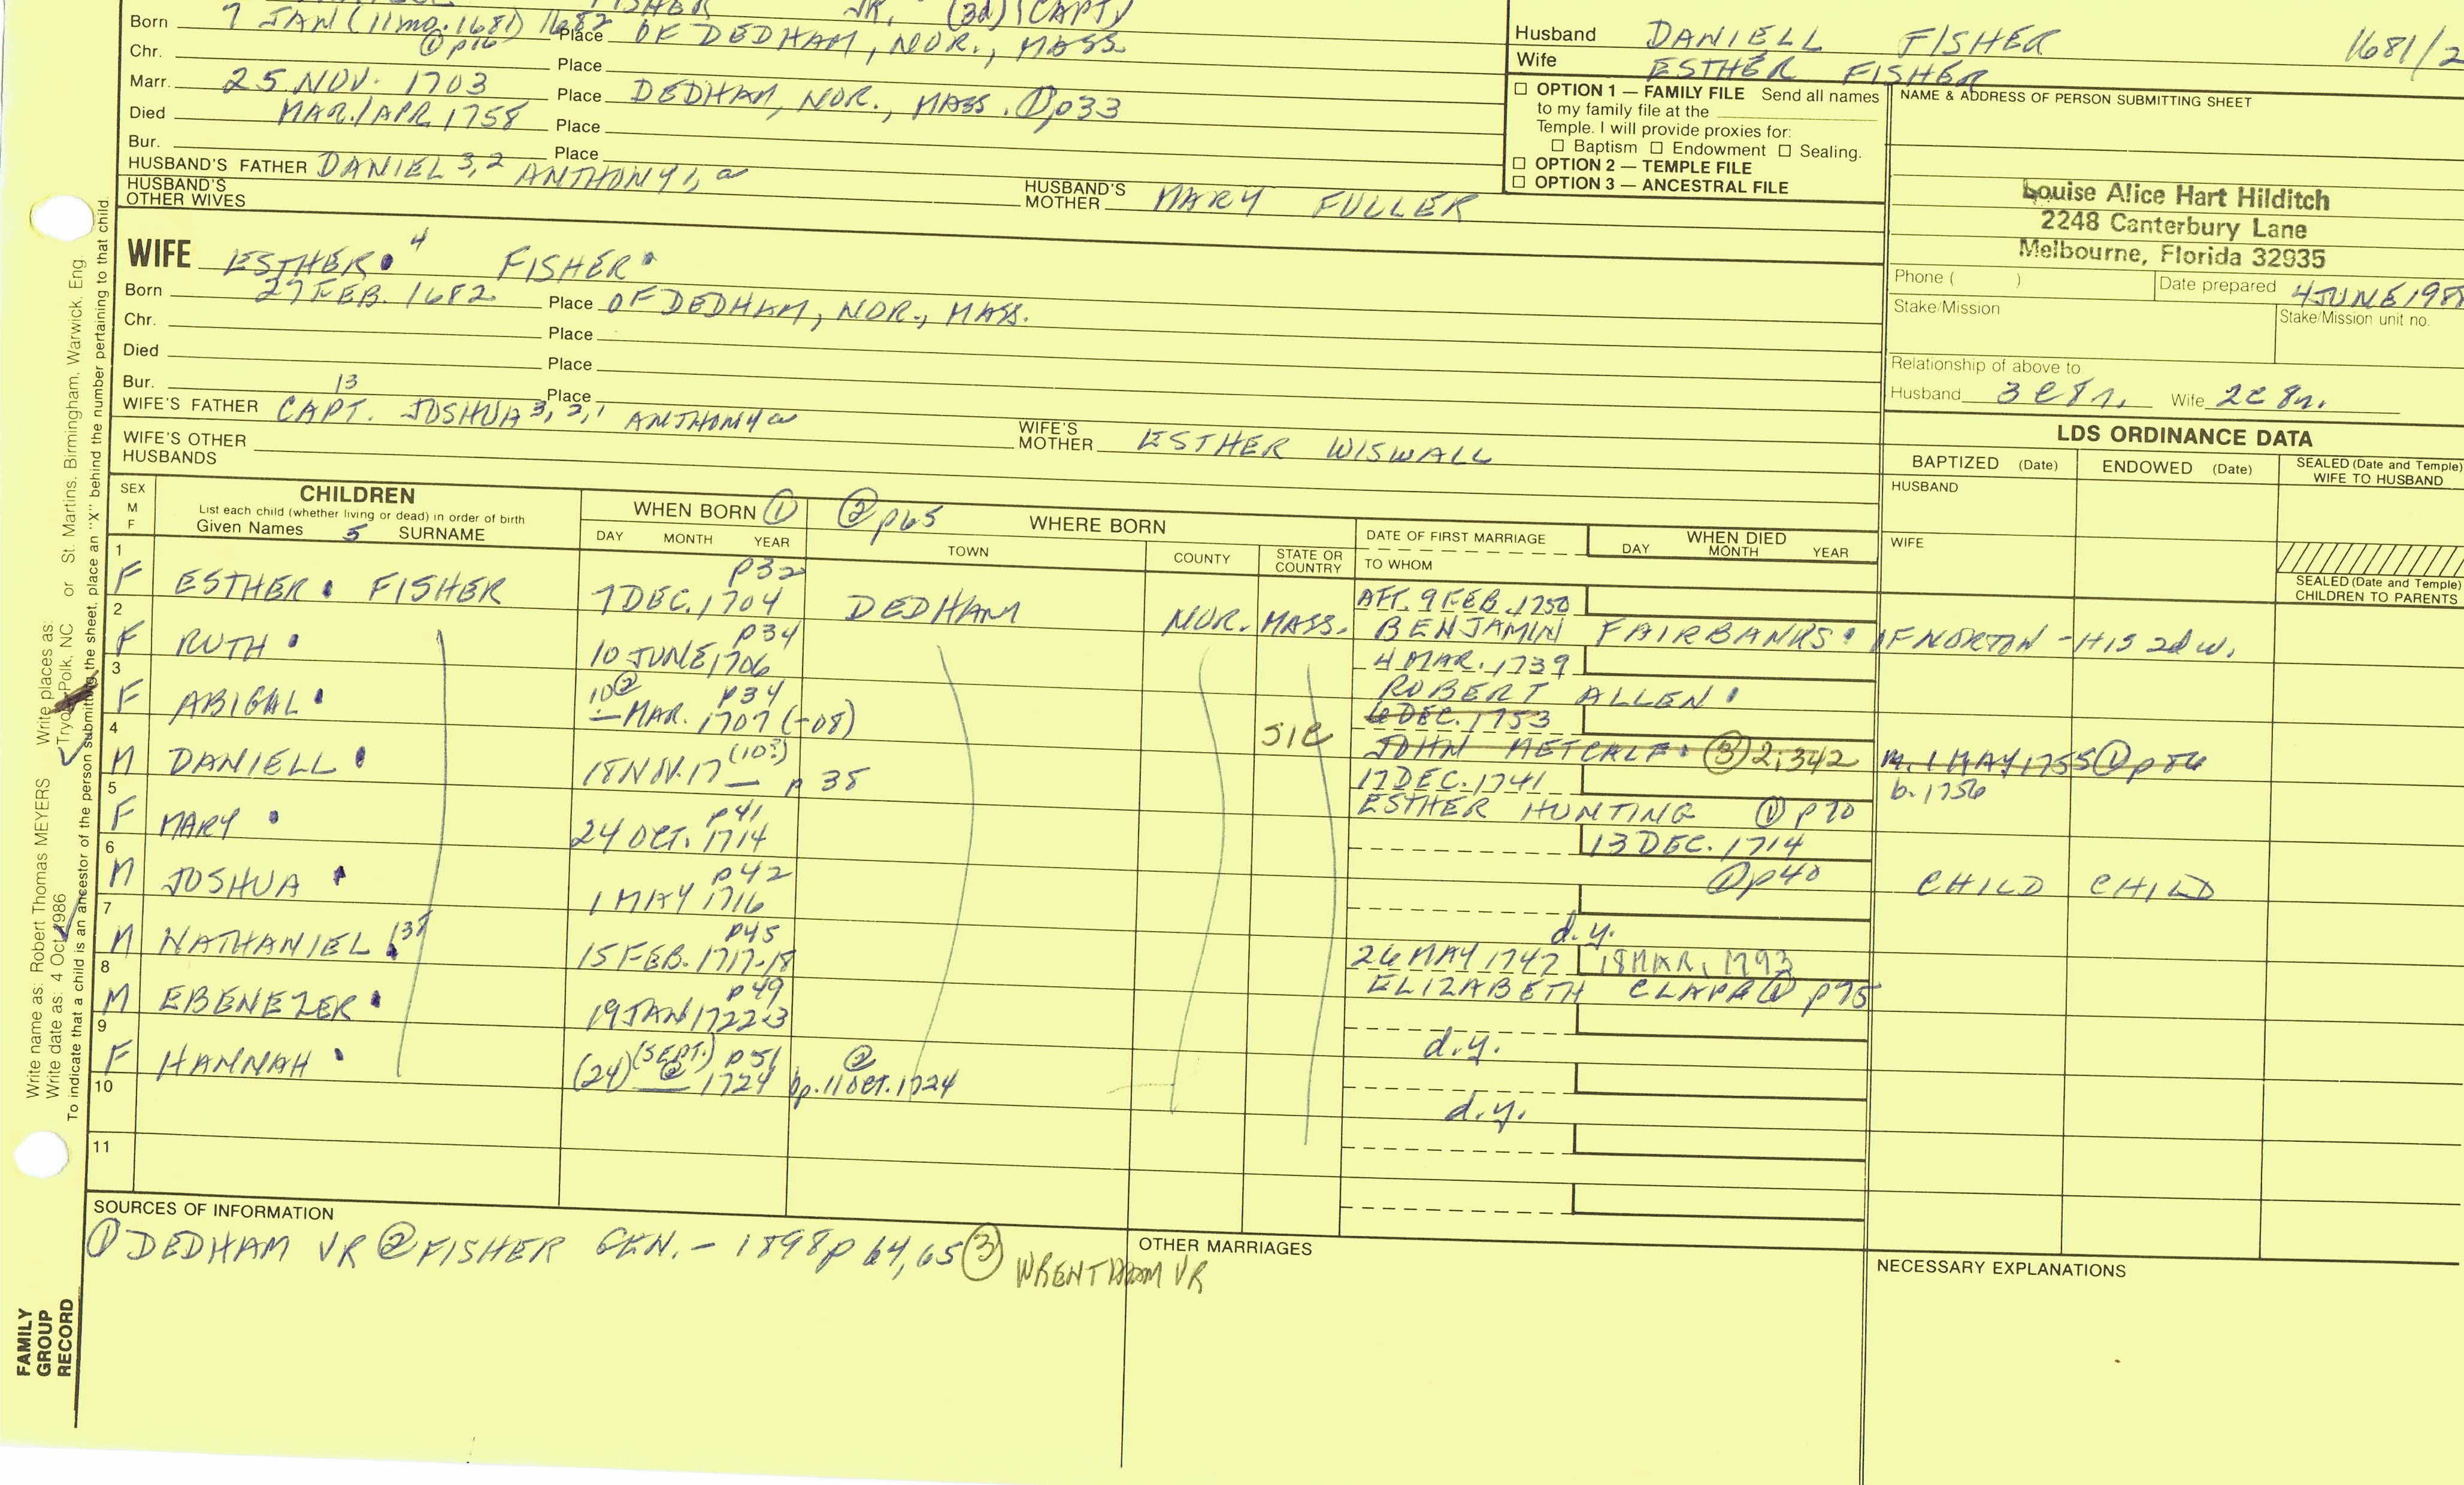 FISHER JR. (3d) (CAPT)
Born 7 JAN (11mo. 1681) 1682 Place OF DEDHAM, NOR., MASS
① p16
Chr. Place
Marr. 25 NOV. 1703 Place DEDHAM, NOR., MASS. ① p33
Died MAR./APR 1758 Place
Bur. Place
HUSBAND'S FATHER DANIEL 3,2 ANTHONY 1, a
HUSBAND'S MOTHER MARY FULLER
HUSBAND'S OTHER WIVES
Husband DANIELL FISHER 1681/2
Wife ESTHER FISHER
☐ OPTION 1 — FAMILY FILE Send all names
to my family file at the
Temple. I will provide proxies for:
☐ Baptism ☐ Endowment ☐ Sealing.
☐ OPTION 2 — TEMPLE FILE
☐ OPTION 3 — ANCESTRAL FILE
NAME & ADDRESS OF PERSON SUBMITTING SHEET
Louise Alice Hart Hilditch
2248 Canterbury Lane
Melbourne, Florida 32935
Phone ( )
Date prepared 4 JUNE 198
Stake/Mission
Stake/Mission unit no.
Relationship of above to
Husband 3C8r. Wife 2C8r.
WIFE ESTHER 4 FISHER
Born 27 FEB. 1682 Place OF DEDHAM, NOR., MASS.
Chr. Place
Died Place
Bur. Place
13
WIFE'S FATHER CAPT. JOSHUA 3, 2, 1 ANTHONY a
WIFE'S MOTHER ESTHER WISWALL
WIFE'S OTHER HUSBANDS
LDS ORDINANCE DATA
BAPTIZED (Date) ENDOWED (Date) SEALED (Date and Temple) WIFE TO HUSBAND
HUSBAND
WIFE
SEALED (Date and Temple) CHILDREN TO PARENTS
SEX M F
CHILDREN
List each child (whether living or dead) in order of birth
Given Names 5 SURNAME
WHEN BORN ①
DAY MONTH YEAR
② p65 WHERE BORN
TOWN COUNTY STATE OR COUNTRY
DATE OF FIRST MARRIAGE
TO WHOM
WHEN DIED
DAY MONTH YEAR
1 F ESTHER FISHER p32 7 DEC. 1704 DEDHAM NOR. MASS. AFT. 9 FEB. 1750
BENJAMIN FAIRBANKS OF NORTON - HIS 2d w.
2 F RUTH p34 10 JUNE 1706 4 MAR. 1739
ROBERT ALLEN
3 F ABIGAL 10② p34 — MAR. 1707 (-08) SIC 6 DEC. 1753
JOHN METCALF ③ 2:342 m. 1 MAY 1755 ① p86
b. 1756
4 M DANIELL 18 NOV. 17 (10?) — p 38 17 DEC. 1741
ESTHER HUNTING ① p70
5 F MARY p41 24 OCT. 1714 13 DEC. 1714
① p40 CHILD CHILD
6 M JOSHUA p42 1 MAY 1716
d.y.
7 M NATHANIEL p45 15 FEB. 1717-18 26 MAY 1747 18 MAR. 1793
ELIZABETH CLAPP ① p75
8 M EBENEZER p49 19 JAN 1722-3
d.y.
9 F HANNAH (24) (SEPT.) ② p51 — 1724 ② bp. 11 OCT. 1724
d.y.
10
11
SOURCES OF INFORMATION
① DEDHAM VR ② FISHER GEN. - 1898 p 64, 65 ③ WRENTHAM VR
OTHER MARRIAGES
NECESSARY EXPLANATIONS
Write name as: Robert Thomas MEYERS Write places as: Tryon, Polk, NC or St. Martins, Birmingham, Warwick, Eng.
Write date as: 4 Oct 1986
To indicate that a child is an ancestor of the person submitting the sheet, place an "X" behind the number pertaining to that child.
FAMILY
GROUP
RECORD